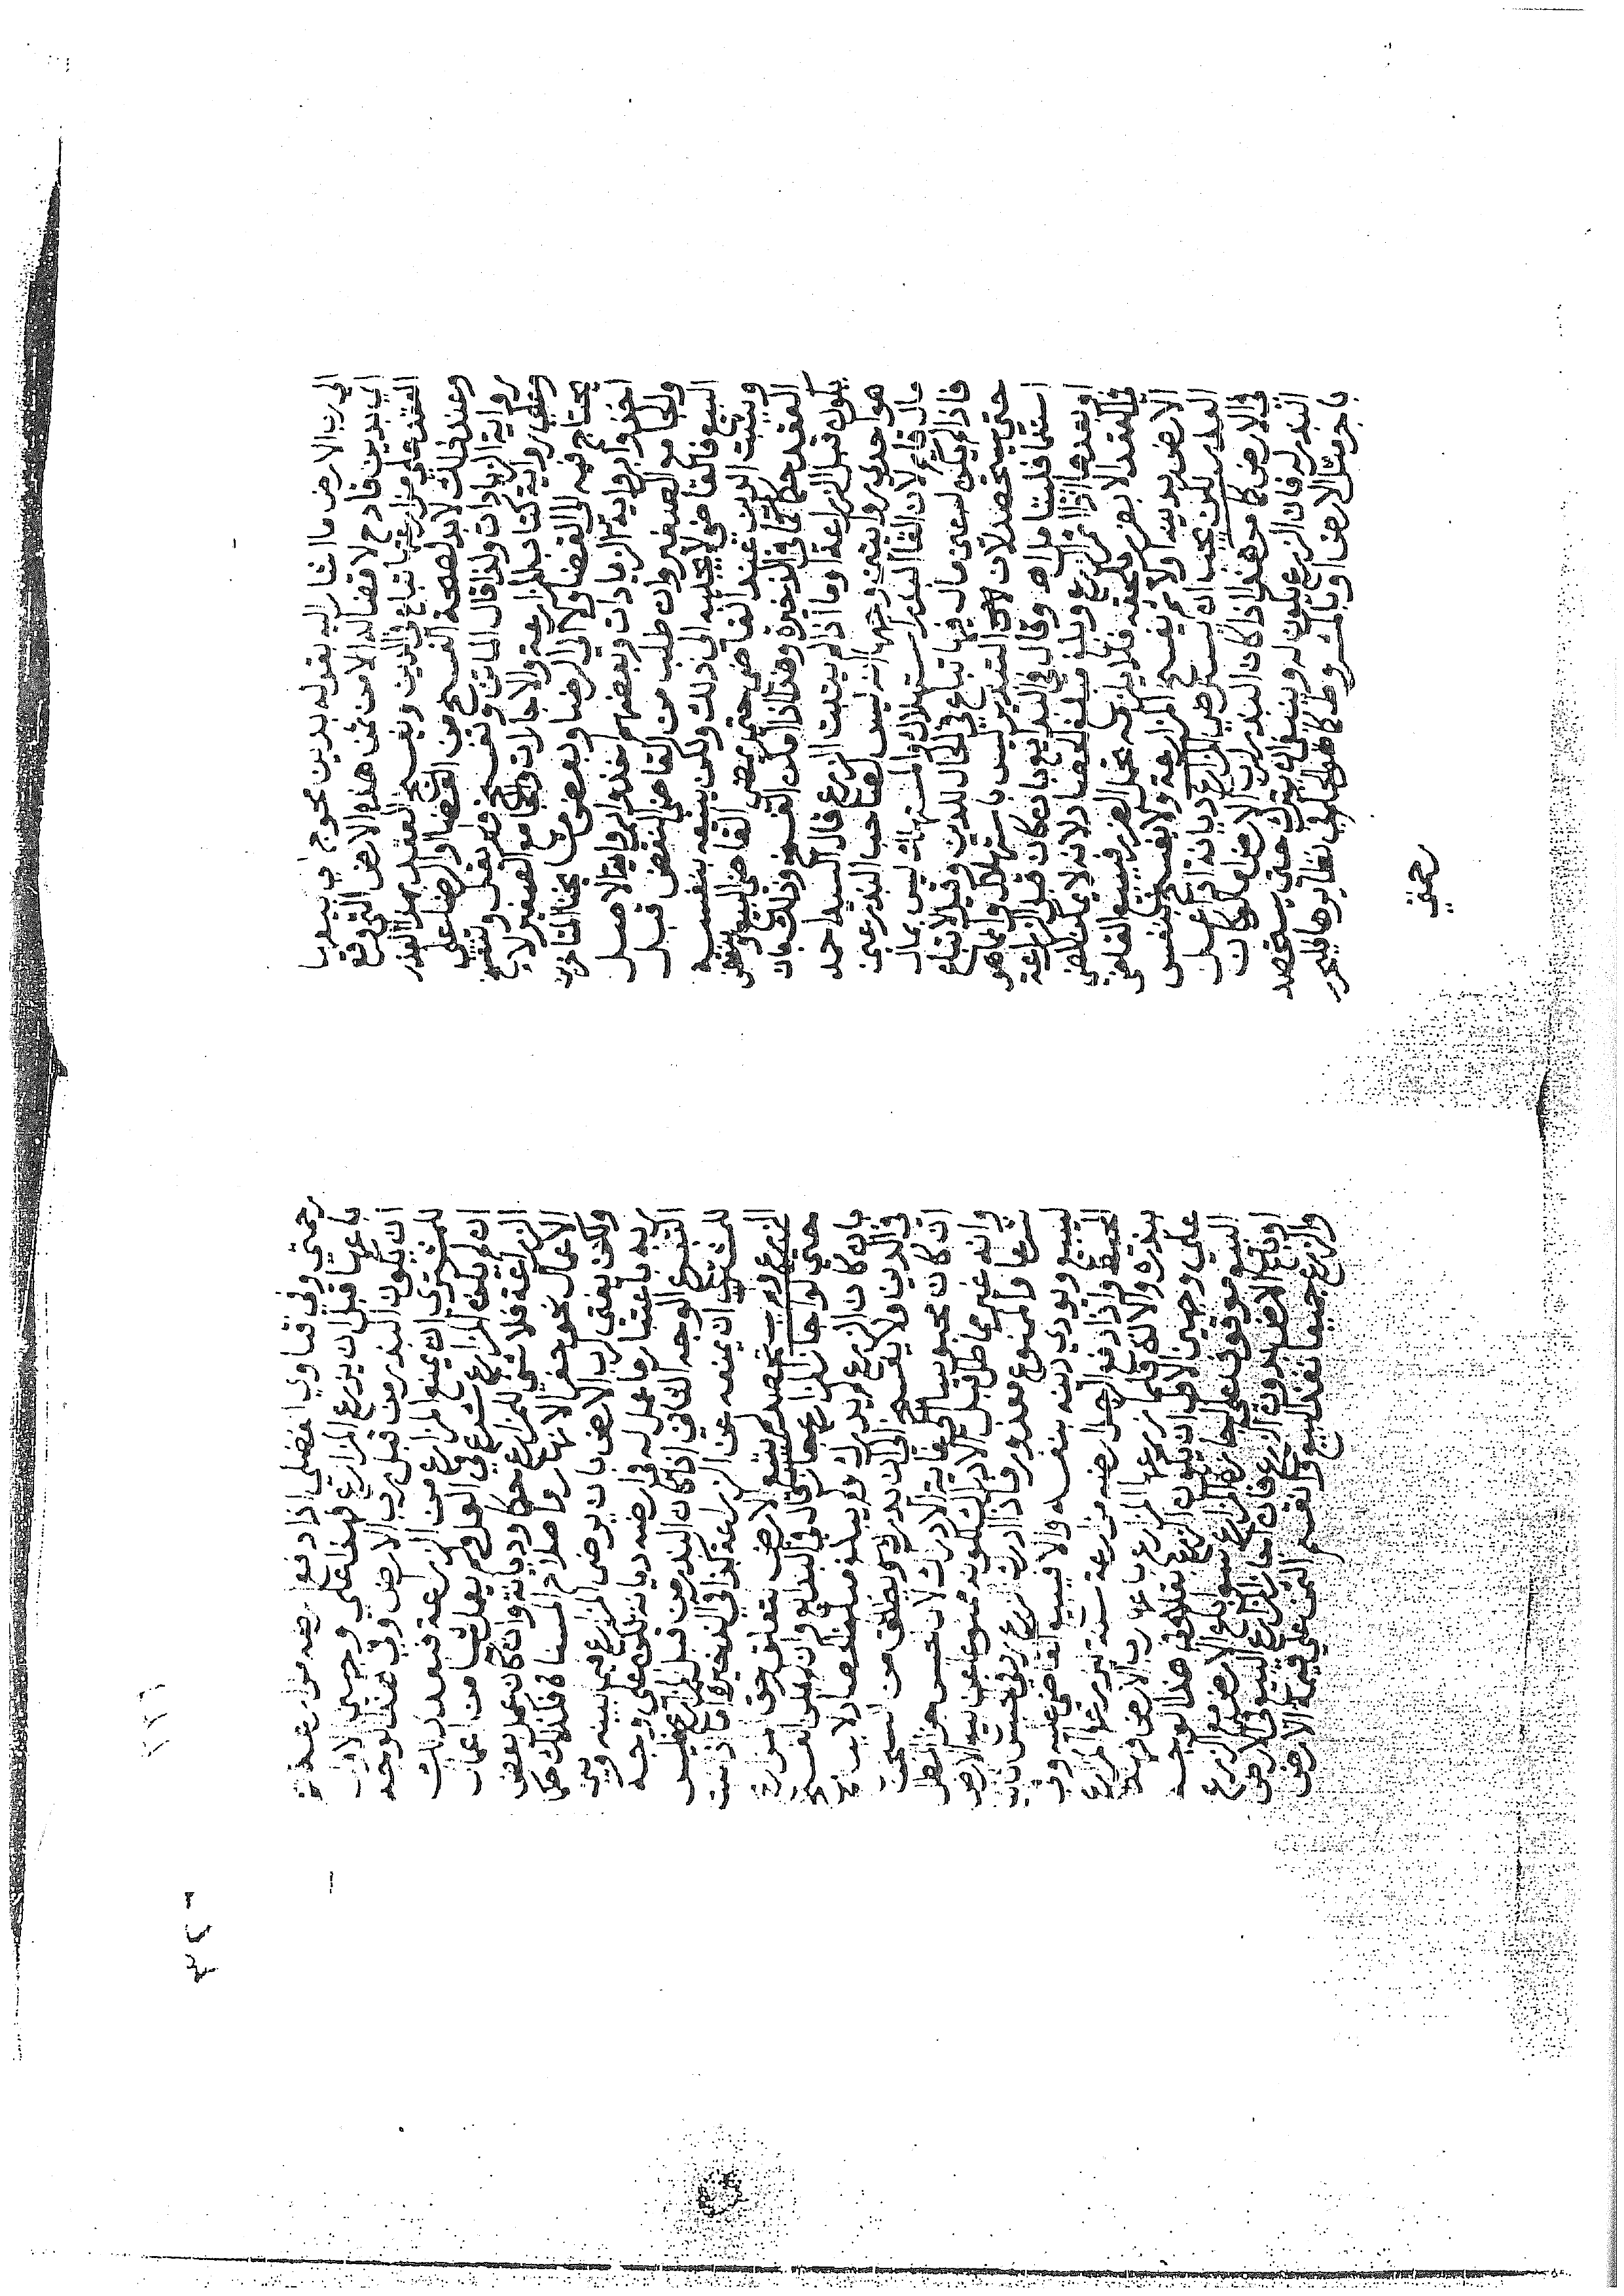 الى رب الارض ما اشار اليه بقوله بدين محوج اي بيعها
اي بدين فادح لا قضا له الا من ثمن هذه الارض التي وقع
العقد على مزارعتها تباع في الدين ويفسخ العقد بهذا العذر
وعند ذلك لابد لصحة الفسخ من القضا او الرضا على
رواية الزيادات ولذا قال الماتن وتفسخ ولم يقل وتنفسخ
وعلى رواية كتاب المزارعة والاجارات والجامع الصغير لا
يحتاج فيه الى القضا ولا الى الرضا وبعض مشايخنا المتاخرين
اخذوا برواية الزيادات وبعضهم اخذوا برواية الاصل
والجامع الصغير وان طلب من القاضي النقض قبل
البيع فالقاضي لا يجيبه الى ذلك ولكن يبيعه بنفسه
ويثبت الدين عند القاضي حتى يمضي القاضي البيع وينقض
العقد حكما كذا في الذخيرة وهذا اذا امكن الفسخ وذلك بان
يكون قبل الزراعة او ما اذا لم ينبت الزرع قال السيد احمد
هو احدى روايتين وجهها انه ليس لصاحب البذر عين
مال قايم لان القا البذر استهلاك والمستهلك ليس بمال
فاذا لم يكن له عين مال فيها تباع في الحال للدين وقيل لا تباع
حتى يستحصد لان التبذير ليس باستهلاك وانما هو
استنما اهـ وقال في البدايع بان كان قبل الزراعة
او بعدها اذا ادرك الزرع وبلغ مبلغ الحصاد لانه لا يمكنه المضي
في العقد الا بضرر يلحقه فلا يلزمه تحمل الضرر فيبيع القاضي
الارض بدينه اولا ثم يفسخ المزارعة ولا تنفسخ بنفس
العذر لكن يجب ان يسترضي المزارع ديانة اذا عمل
في الارض كما مر هذا اذا كان البذر لرب الارض ولو كان
البذر له فان الزرع يكون له وينبغي ان يترك حتى يستحصد
باجر مثل الارض او بالمشروط كما هو الحكم في نظايرها فليحرر
رحمتي
رحمتي وفي فتاوى الفضلي اذا دفع ارضه مزارعة ثم
باعها قبل ان يزرع المزارع فهذا على وجهين الاول
ان يكون البذر من قبل رب الارض وفي هذا الوجه
للمشتري ان يمنع المزارع من الزراعة فبعد ذلك
ان لم يكن المزارع شرع في العمل ولم يعمل شيا من اعمال
الزراعة فلا شي للمزارع حكما وديانة وان كان عمل بعض
الاعمال نحو حفر الانهار واصلاح المسناة فكذلك حكما
ولكن يفتى لرب الارض بان يرضي المزارع فيما بينه وبين
ربه باعتبار ما عمل له في ارضه ديانة لكن على وجه
التبرع الوجه الثاني اذا كان البذر من قبل المزارع فليس
للمشتري ان يمنعه عن الزراعة كذا في الذخيرة اما اذا نبت
الزرع ولم يستحصد لم تبع الارض لتعلق حق المزارع
حتى لو اجاز المزارع جاز قال في البدايع وان لم يمكن الفسخ
بان كان الزرع لم يدرك ولم يبلغ مبلغ الحصاد لا يباع
في الدين ولا يفسخ الى ان يدرك ويطلق من السجن
ان كان محبوسا الى غاية الادراك لان الحبس جزا المطل
وانه غير مماطل قبل الادراك لكونه ممنوعا عن بيع الارض
شرعا والممنوع معذور فاذا ادرك الزرع يرد الى الحبس ثانيا
ليبيع ويودي دينه بنفسه والا فيبيع القاضي عليه وفي
اليتيمة واذا دفع الرجل ارضه مزارعة سنة ليزرعها المزارع
ببذره والاته فلما زرعها المزارع باع رب الارض فهذا
على وجهين الاول ان يكون الزرع بقلا وفي هذا الوجه
البيع موقوف على اجازة المزارع سوا باع الارض مع الزرع
او باع الارض بدون الزرع فان اجاز المزارع البيع في الارض
والزرع جميعا نفذ البيع وانقسم الثمن على قيمة الارض